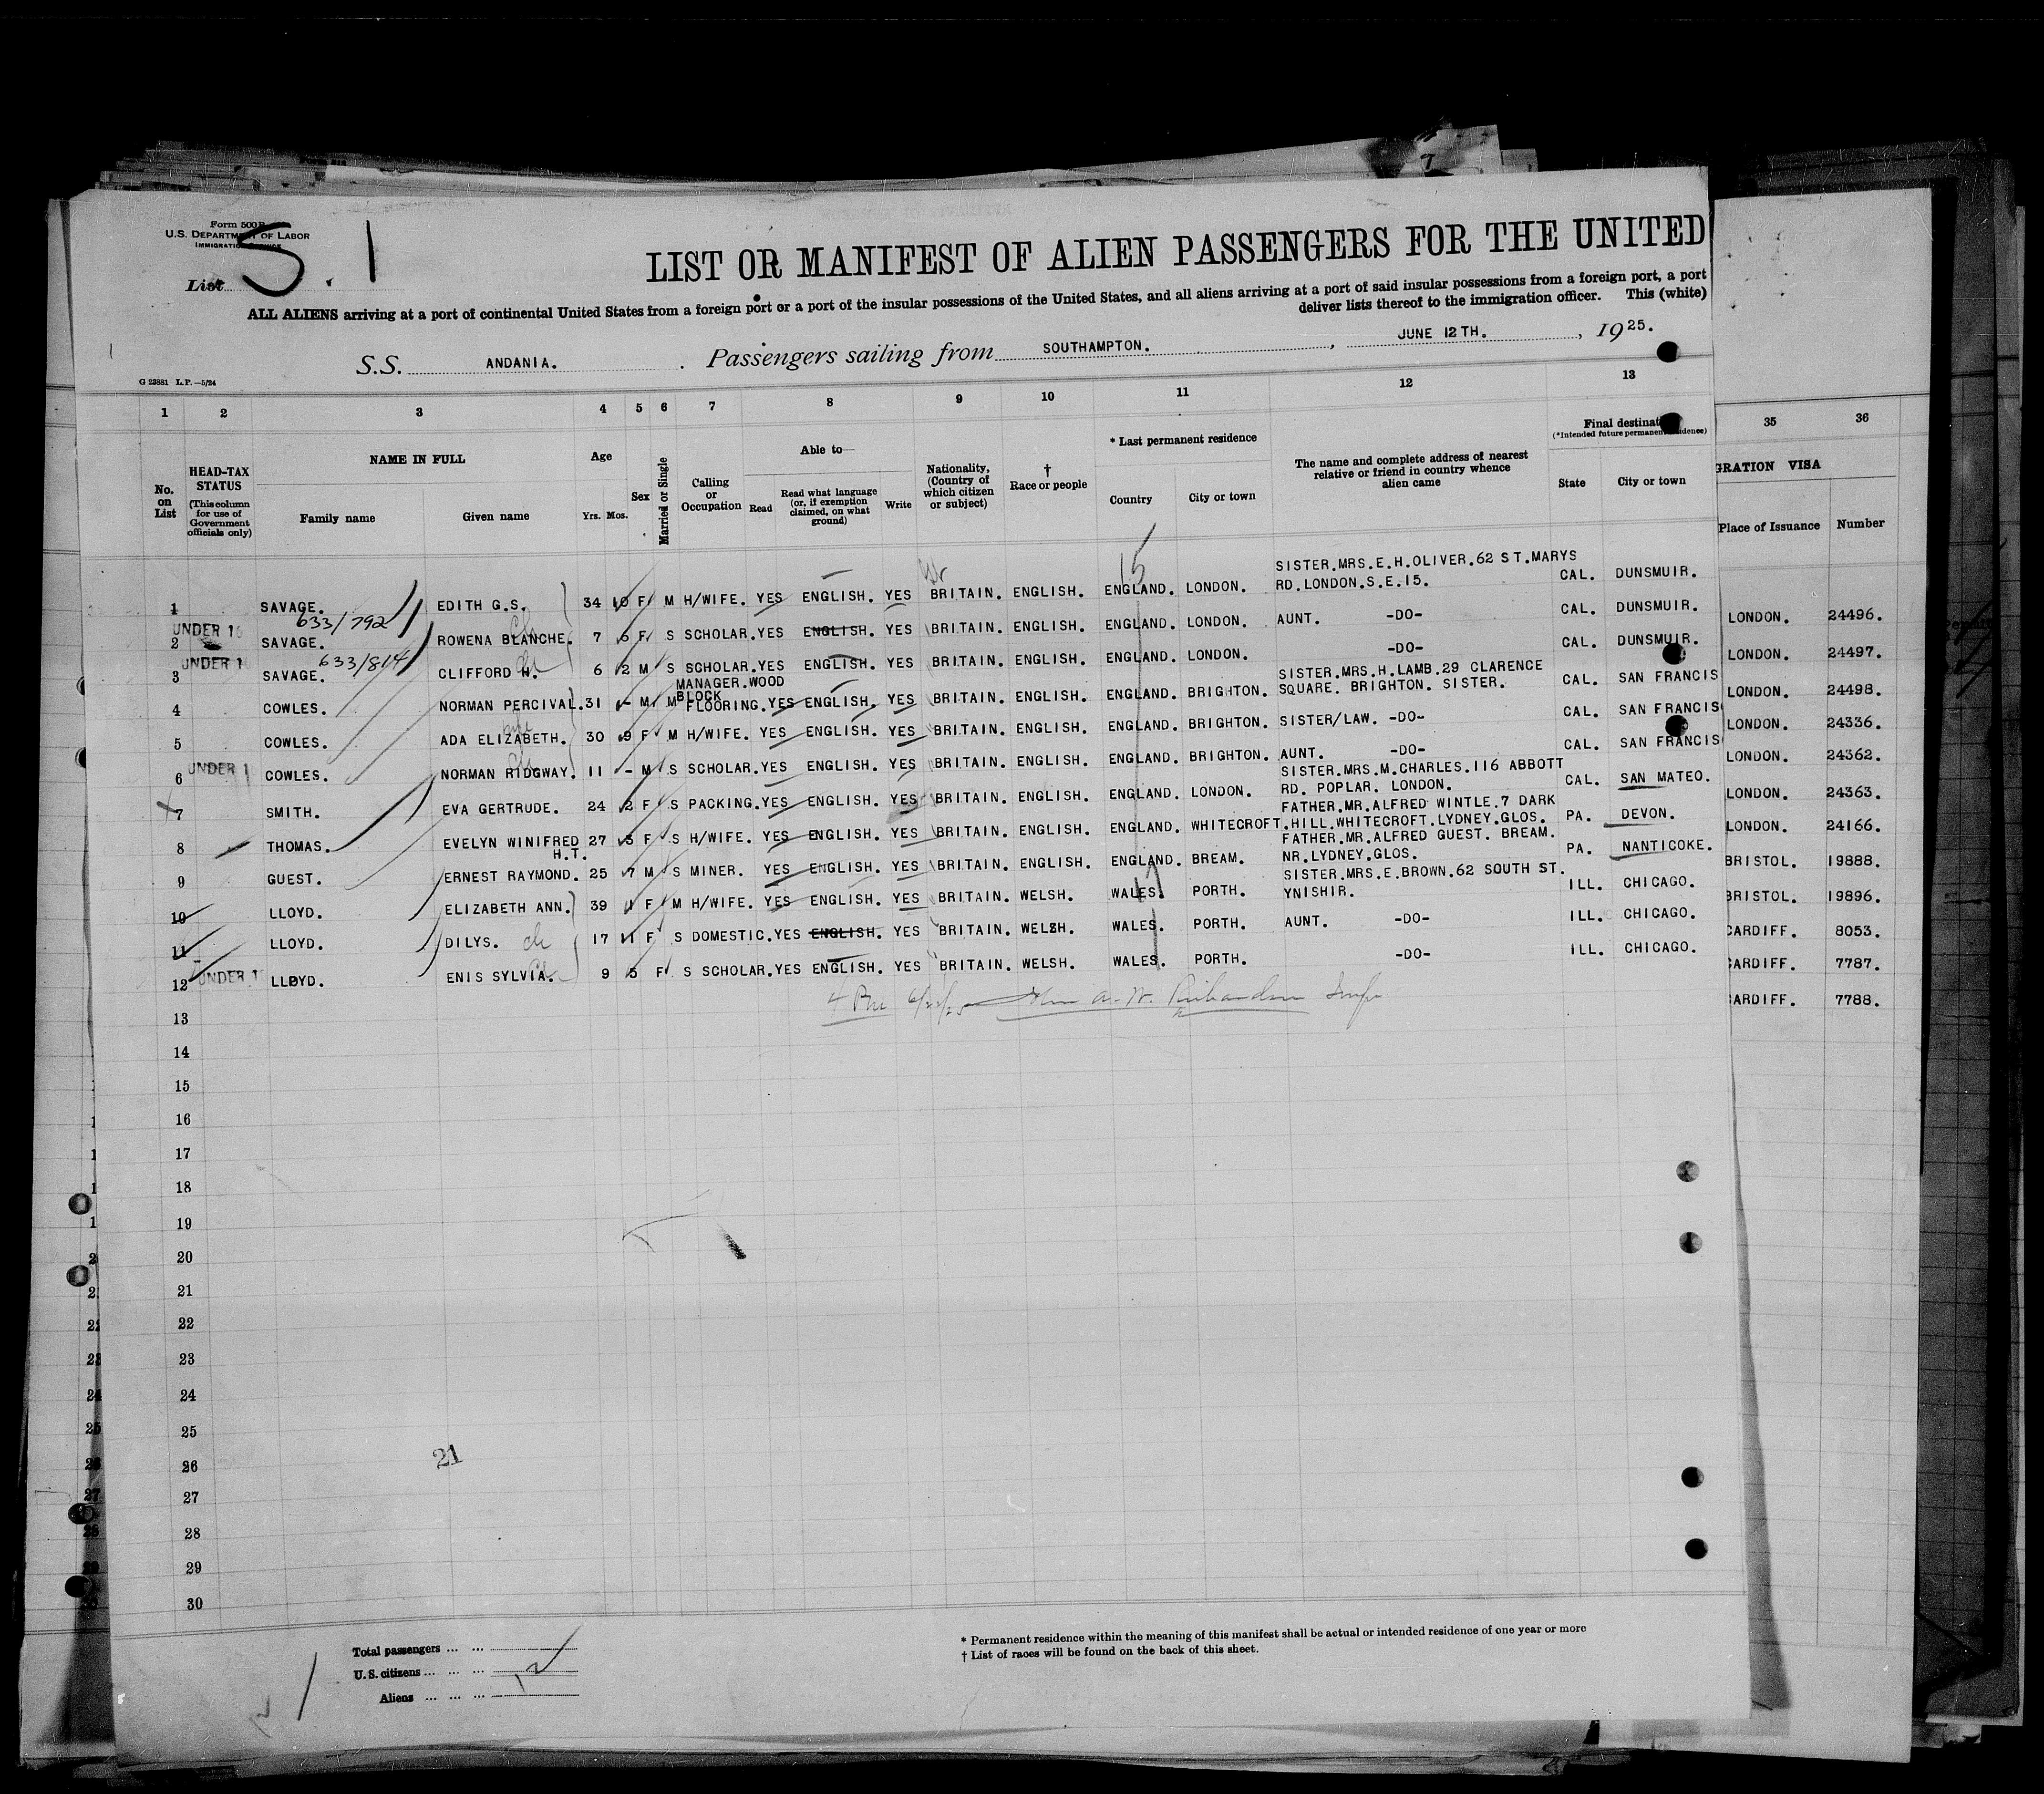 Form 500 B
U.S. DEPARTMENT OF LABOR
IMMIGRATION SERVICE
List S. 1
LIST OR MANIFEST OF ALIEN PASSENGERS FOR THE UNITED
ALL ALIENS arriving at a port of continental United States from a foreign port or a port of the insular possessions of the United States, and all aliens arriving at a port of said insular possessions from a foreign port, a port
deliver lists thereof to the immigration officer. This (white)
S.S. ANDANIA. Passengers sailing from SOUTHAMPTON. , JUNE 12TH. , 1925.
G 23881 L.P.—5/24
1 2 3 4 5 6 7 8 9 10 11 12 13 35 36
No. on List
HEAD-TAX STATUS
(This column for use of Government officials only)
NAME IN FULL
Family name Given name
Age
Yrs. Mos.
Sex
Married or Single
Calling or Occupation
Able to—
Read
Read what language (or, if exemption claimed, on what ground)
Write
Nationality, (Country of which citizen or subject)
† Race or people
* Last permanent residence
Country City or town
The name and complete address of nearest relative or friend in country whence alien came
Final destinat
(*Intended future permanent residence)
State City or town
GRATION VISA
Place of Issuance Number
15
1 SAVAGE. EDITH G.S. 34 10 F M H/WIFE. YES ENGLISH. YES BRITAIN. ENGLISH. ENGLAND. LONDON. SISTER.MRS.E.H.OLIVER.62 ST.MARYS RD.LONDON.S.E.15. CAL. DUNSMUIR. LONDON. 24496.
633/792
UNDER 16
2 SAVAGE. ROWENA BLANCHE. 7 5 F S SCHOLAR. YES ENGLISH. YES BRITAIN. ENGLISH. ENGLAND. LONDON. AUNT. -DO- CAL. DUNSMUIR. LONDON. 24497.
633/814
UNDER 1
3 SAVAGE. CLIFFORD H. 6 2 M S SCHOLAR. YES ENGLISH. YES BRITAIN. ENGLISH. ENGLAND. LONDON. -DO- CAL. DUNSMUIR. LONDON. 24498.
4 COWLES. NORMAN PERCIVAL. 31 - M M MANAGER.WOOD BLOCK FLOORING. YES ENGLISH. YES BRITAIN. ENGLISH. ENGLAND. BRIGHTON. SISTER.MRS.H.LAMB.29 CLARENCE SQUARE. BRIGHTON. SISTER. CAL. SAN FRANCIS LONDON. 24336.
5 COWLES. ADA ELIZABETH. 30 9 F M H/WIFE. YES ENGLISH. YES BRITAIN. ENGLISH. ENGLAND. BRIGHTON. SISTER/LAW. -DO- CAL. SAN FRANCIS LONDON. 24362.
UNDER 1
6 COWLES. NORMAN RIDGWAY. 11 - M S SCHOLAR. YES ENGLISH. YES BRITAIN. ENGLISH. ENGLAND. BRIGHTON. AUNT. -DO- CAL. SAN FRANCIS LONDON. 24363.
7 SMITH. EVA GERTRUDE. 24 2 F S PACKING. YES ENGLISH. YES BRITAIN. ENGLISH. ENGLAND. LONDON. SISTER.MRS.M.CHARLES.116 ABBOTT RD. POPLAR. LONDON. CAL. SAN MATEO. LONDON. 24166.
8 THOMAS. EVELYN WINIFRED H.T. 27 5 F S H/WIFE. YES ENGLISH. YES BRITAIN. ENGLISH. ENGLAND. WHITECROFT. FATHER.MR.ALFRED WINTLE.7 DARK HILL.WHITECROFT.LYDNEY.GLOS. PA. DEVON. BRISTOL. 19888.
9 GUEST. ERNEST RAYMOND. 25 7 M S MINER. YES ENGLISH. YES BRITAIN. ENGLISH. ENGLAND. BREAM. FATHER.MR.ALFRED GUEST. BREAM. NR.LYDNEY.GLOS. PA. NANTICOKE. BRISTOL. 19896.
10 LLOYD. ELIZABETH ANN. 39 1 F M H/WIFE. YES ENGLISH. YES BRITAIN. WELSH. WALES. PORTH. SISTER.MRS.E.BROWN.62 SOUTH ST. YNISHIR. ILL. CHICAGO. CARDIFF. 8053.
11 LLOYD. DILYS. 17 11 F S DOMESTIC. YES ENGLISH. YES BRITAIN. WELSH. WALES. PORTH. AUNT. -DO- ILL. CHICAGO. CARDIFF. 7787.
UNDER 1
12 LLOYD. ENIS SYLVIA. 9 5 F S SCHOLAR. YES ENGLISH. YES BRITAIN. WELSH. WALES. PORTH. -DO- ILL. CHICAGO. CARDIFF. 7788.
13
14
15
16
17
18
19
20
21
22
23
24
25
21
26
27
28
29
30
Total passengers
U.S. citizens
Aliens
12
* Permanent residence within the meaning of this manifest shall be actual or intended residence of one year or more
† List of races will be found on the back of this sheet.